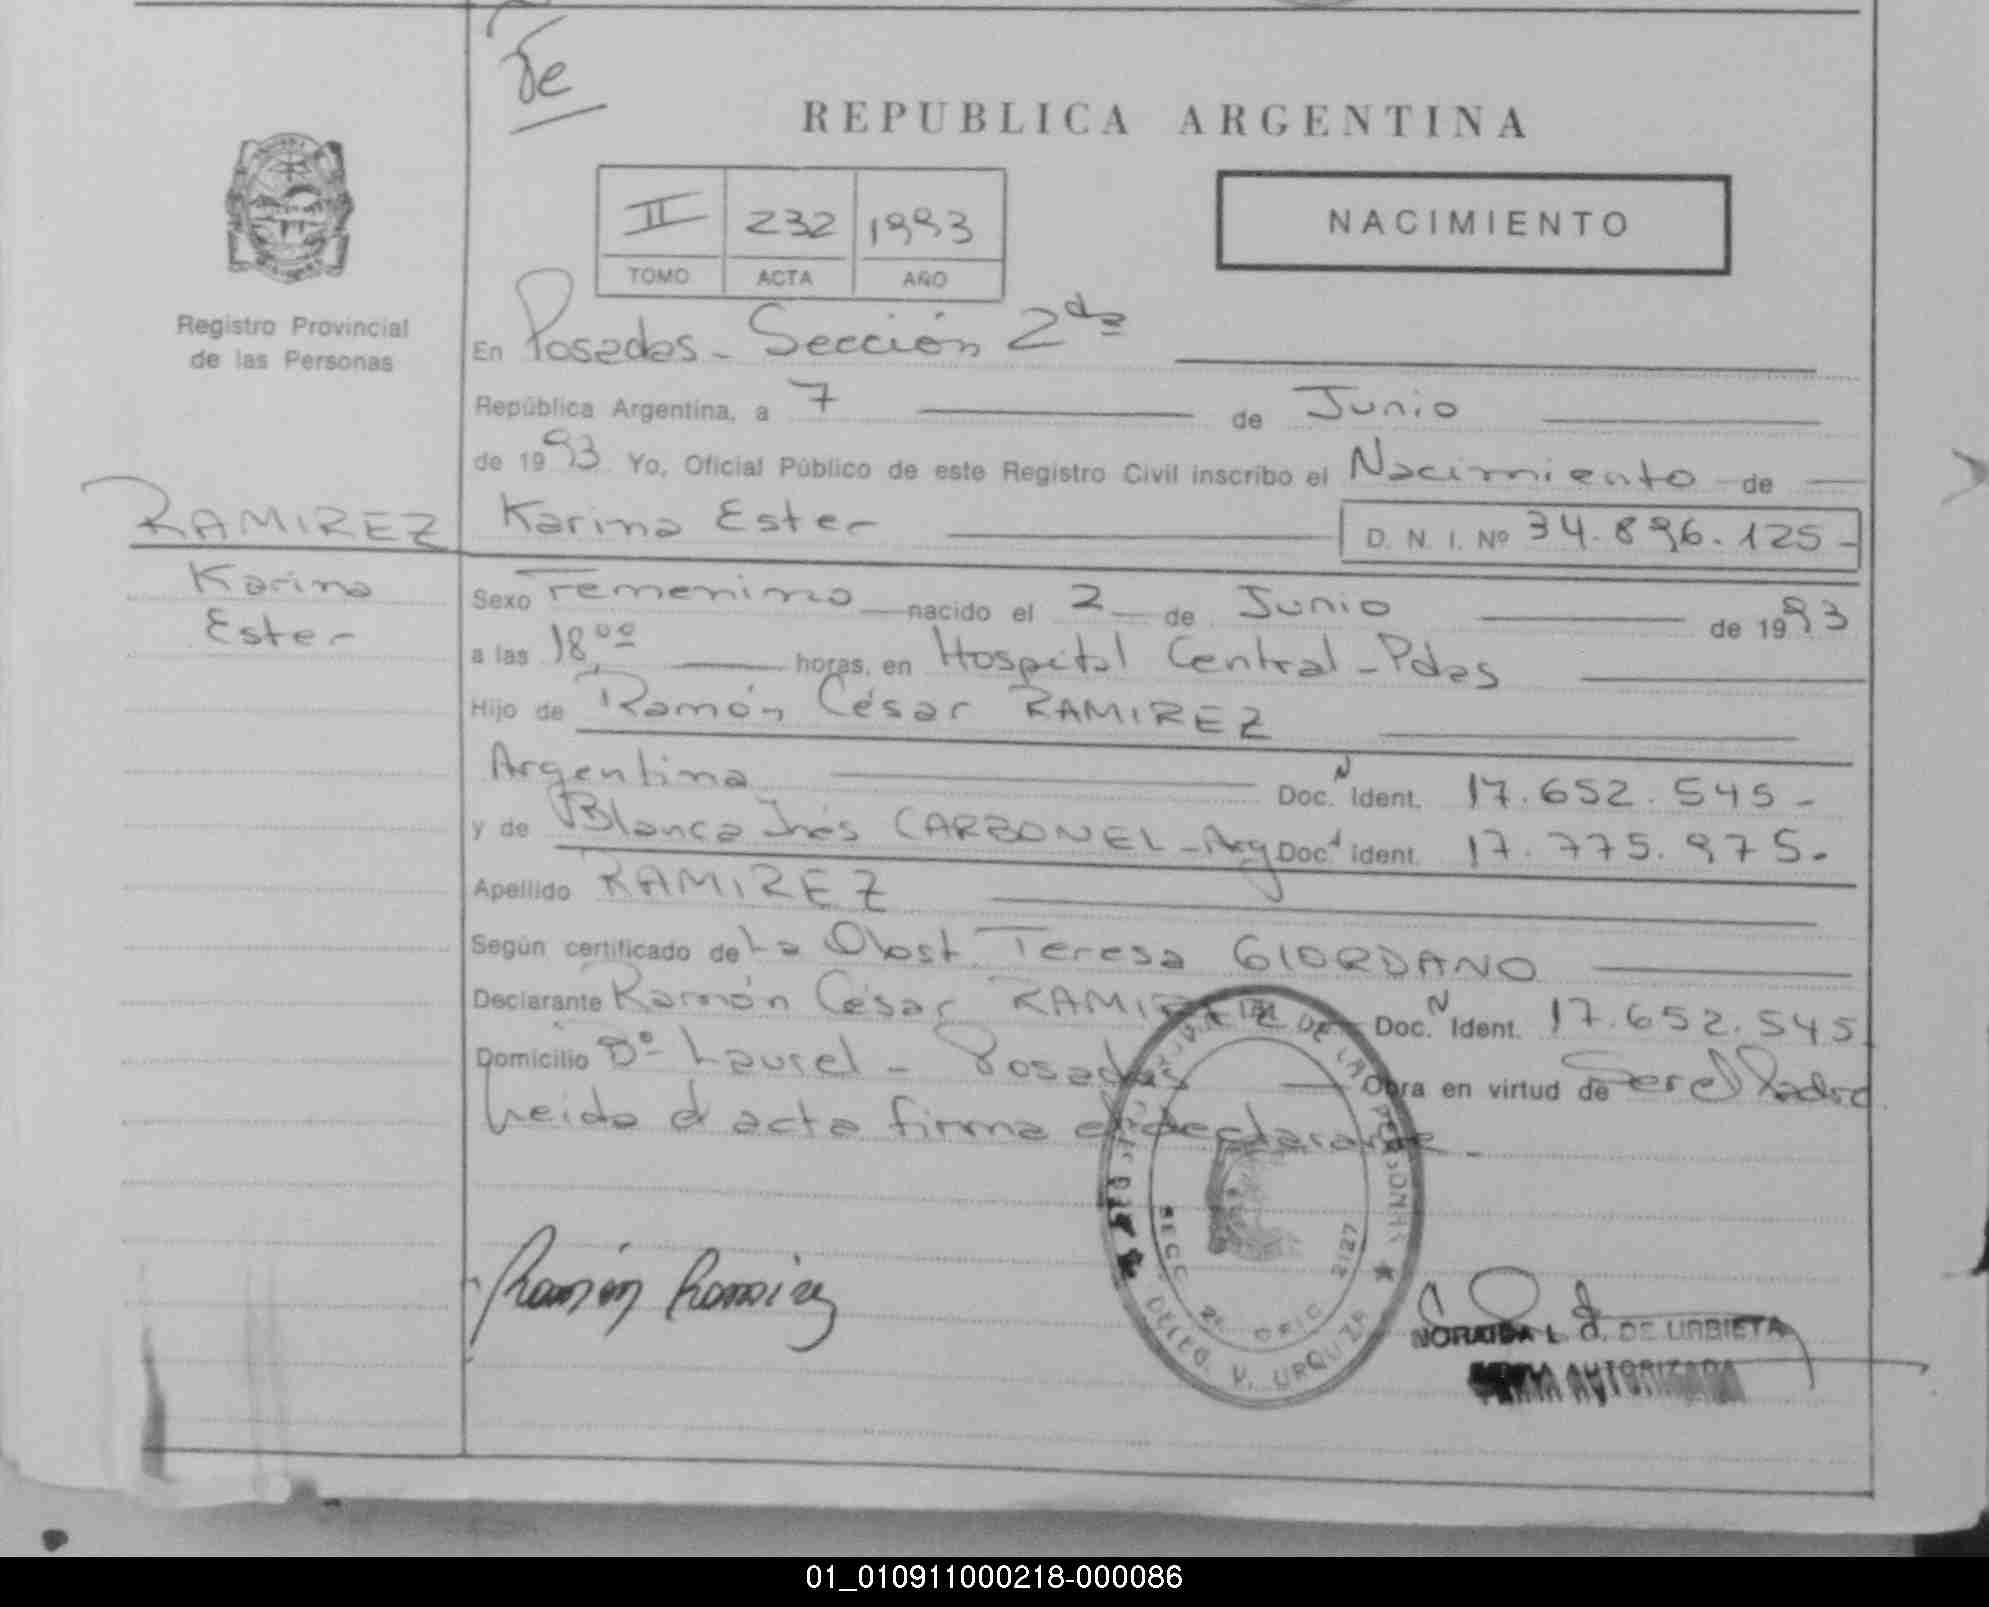 REPUBLICA ARGENTINA
II 232 1993
TOMO ACTA AÑO
NACIMIENTO
Registro Provincial
de las Personas
En Posadas - Sección 2da
República Argentina, a 7 de Junio
de 1993 Yo, Oficial Público de este Registro Civil inscribo el Nacimiento de
RAMIREZ Karina Ester D. N. I. Nº 34.896.125-
Karina
Ester
Sexo Femenino nacido el 2 de Junio de 1993
a las 18,00 horas, en Hospital Central - Pdas
Hijo de Ramón César RAMIREZ
Argentina Doc. N Ident. 17.652.545-
y de Blanca Inés CARBONEL - Arg Doc. Ident. 17.775.975-
Apellido RAMIREZ
Según certificado de La Obst. Teresa GIORDANO
Declarante Ramón César RAMIREZ Doc. N Ident. 17.652.545
Domicilio Bº Laurel - Posadas Obra en virtud de Ser el Padre
Leida el acta firma el declarante -
Ramón Ramirez
DE LAS PERSONAS
SECC. 2a OFIC. 2127
DELEG. V. URQUIZA
NORAIDA L. d. DE URBIETA
FIRMA AUTORIZADA
01_010911000218-000086